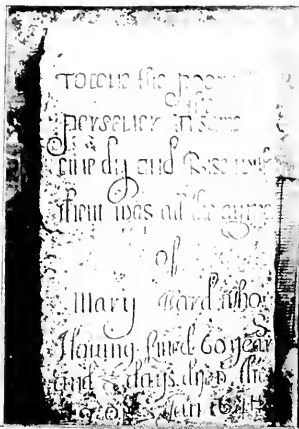 To loue the poor
perseuer in the same
liue dy and Rise with
them was all the ayme
of
Mary Ward who
Hauing liued 60 years
and days dyed the
of Jan 164